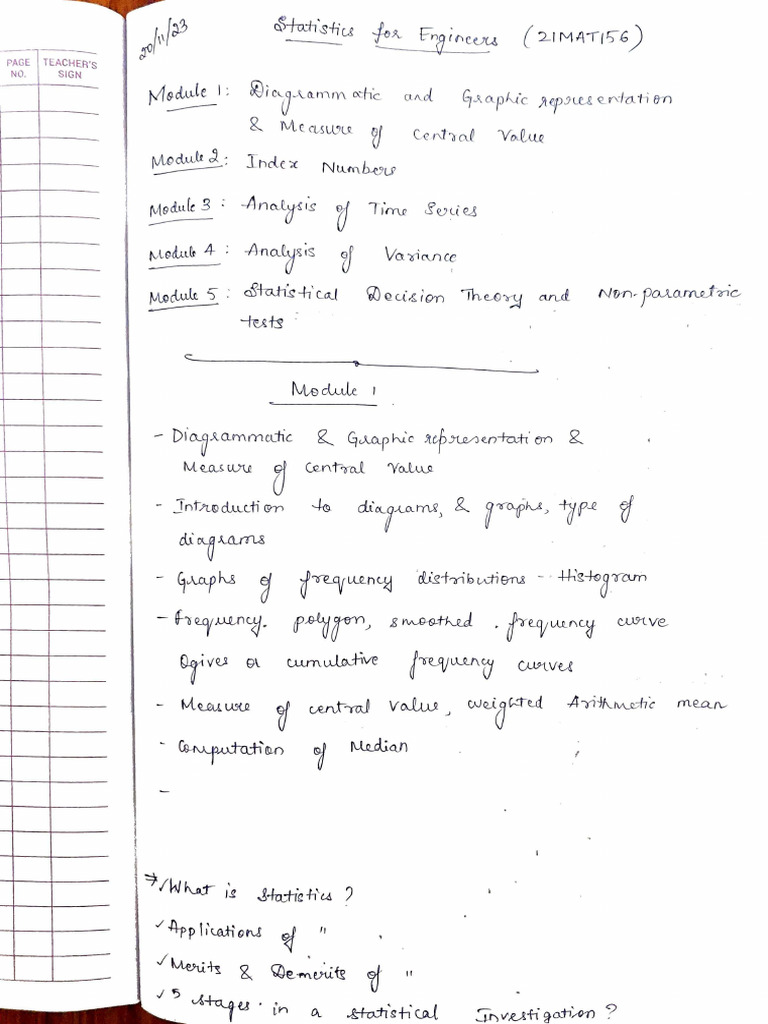 PAGE NO.
TEACHER'S SIGN
20/11/23
Statistics for Engineers (21MAT156)
Module 1: Diagrammatic and Graphic representation
& Measure of Central Value
Module 2: Index Numbers
Module 3: Analysis of Time Series
Module 4: Analysis of Variance
Module 5: Statistical Decision Theory and Non-parametric
tests
Module 1
- Diagrammatic & Graphic representation &
Measure of central value
- Introduction to diagrams, & graphs, type of
diagrams
- Graphs of frequency distributions - Histogram
- Frequency. polygon, smoothed. frequency curve
Ogives or cumulative frequency curves
- Measure of central value, weighted Arithmetic mean
- Computation of Median
-
⇒ ✓ What is statistics?
✓ Applications of "
✓ Merits & Demerits of "
✓ 5 stages in a statistical Investigation?